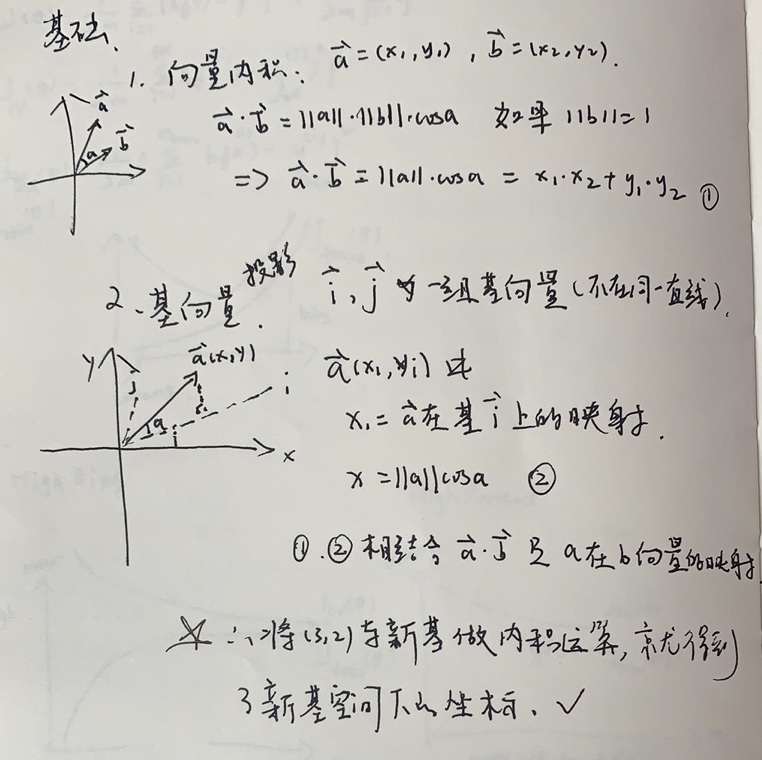 基础、
1. 向量内积: a⃗=(x₁,y₁), b⃗=(x₂,y₂).
a⃗ b⃗ a
a⃗·b⃗=||a||·||b||·cosa 如果||b||=1
=> a⃗·b⃗=||a||·cosa = x₁·x₂+y₁·y₂ ①
2、基向量投影. i⃗,j⃗为一组基向量(不在同一直线).
y a⃗(x,y) j i a i x
a⃗(x₁,yi)中
x₁=a⃗在基i⃗上的映射.
x=||a||cosa ②
①.②相结合 a⃗·b⃗ 是a在b向量的映射
☆ ∴将(3,2)与新基做内积运算,就得到
了新基空间下的坐标、✓